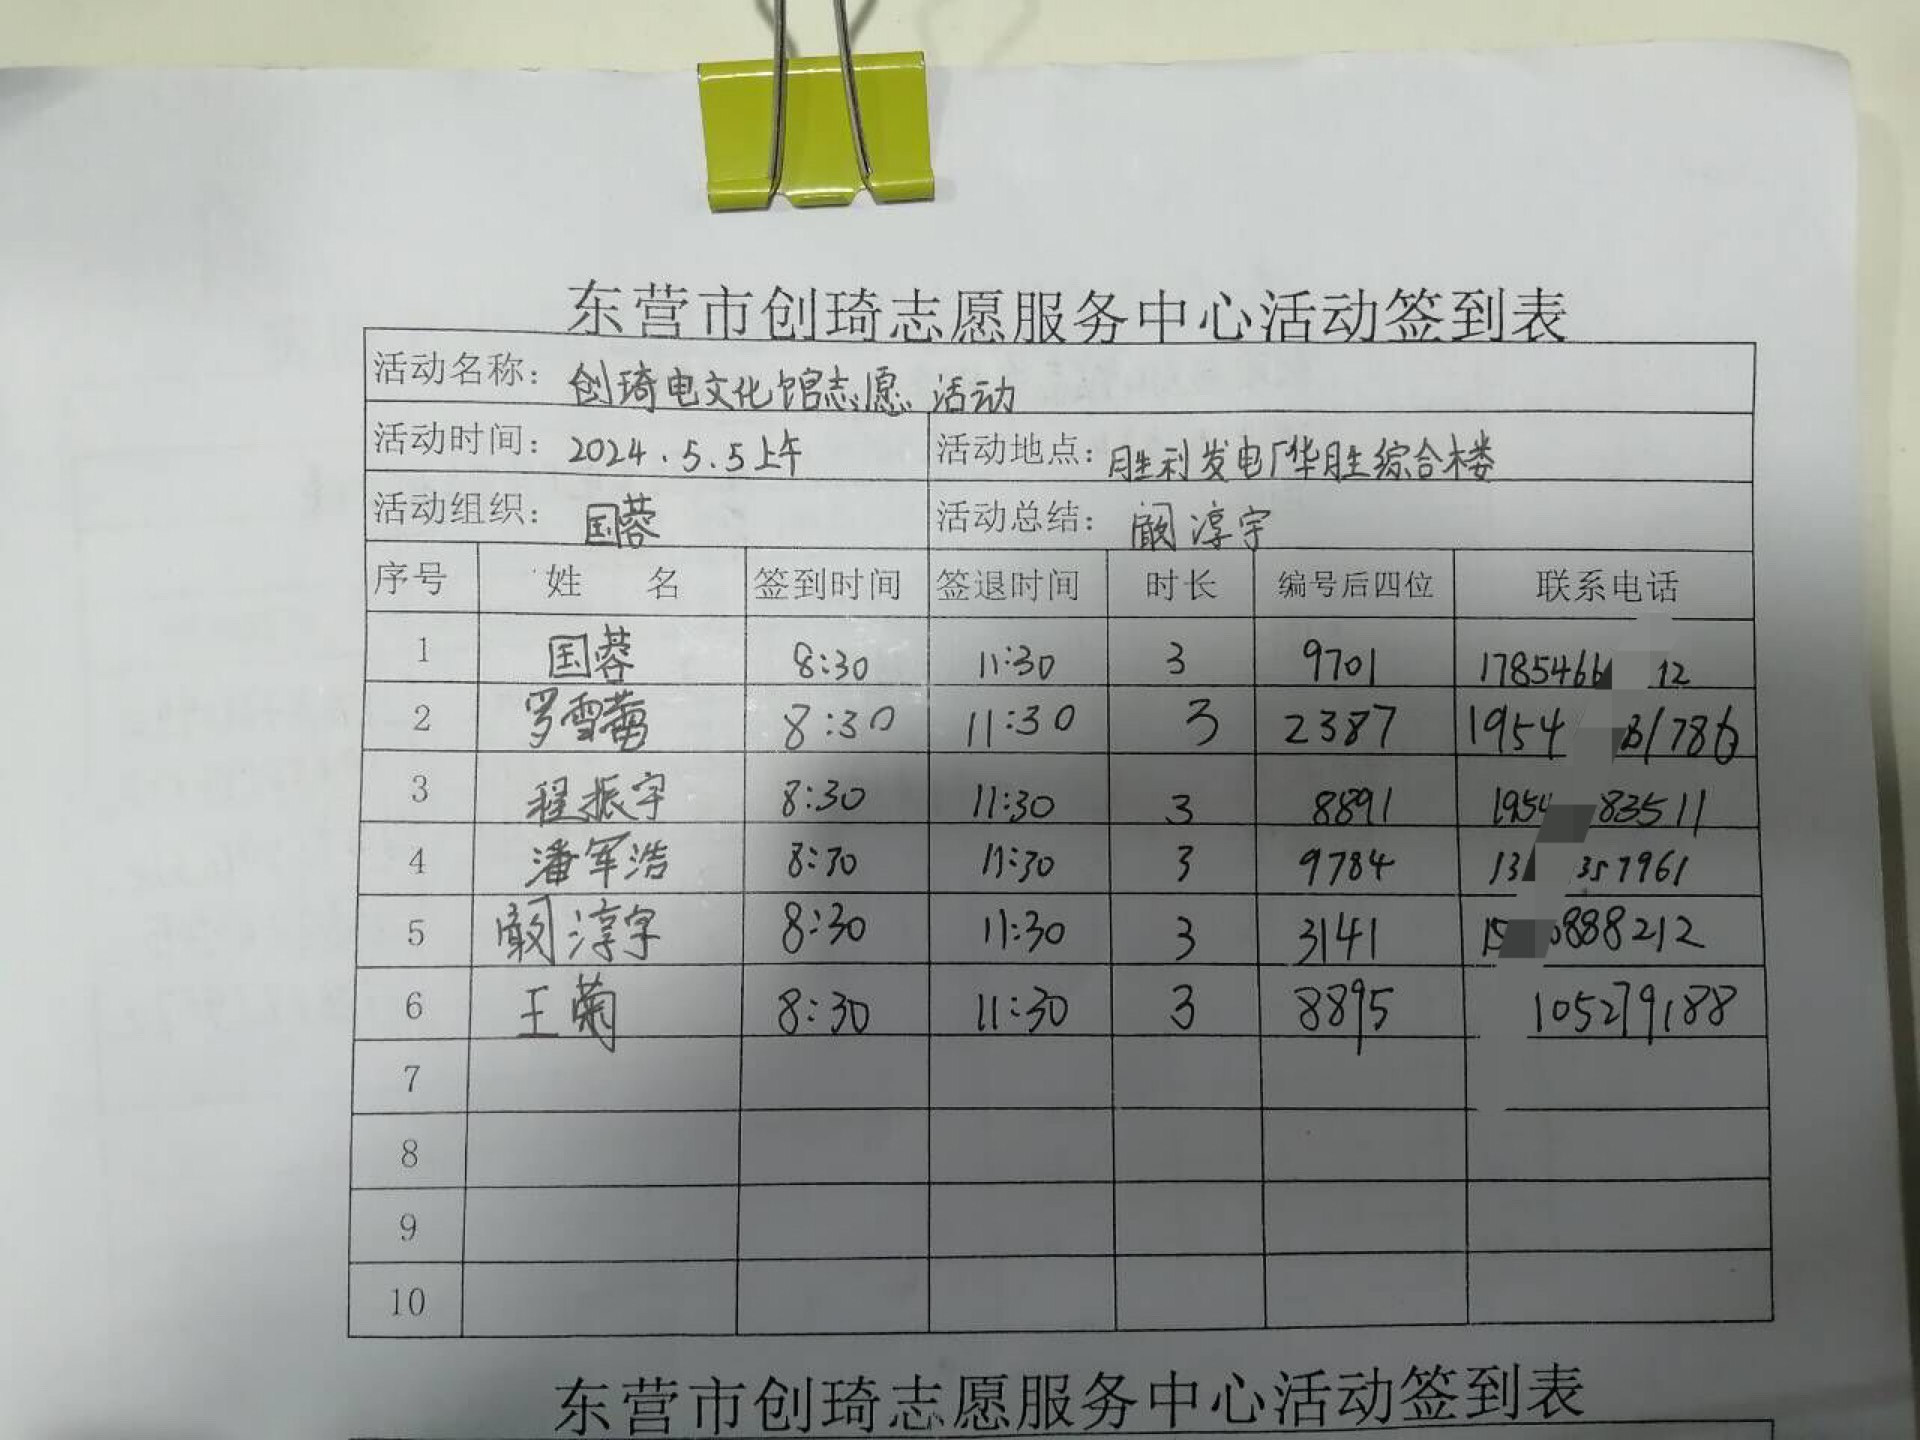 东营市创琦志愿服务中心活动签到表
活动名称: 创琦电文化馆志愿活动
活动时间: 2024.5.5上午 活动地点: 胜利发电厂华胜综合楼
活动组织: 国蓉 活动总结: 阚淳宇
序号 姓 名 签到时间 签退时间 时长 编号后四位 联系电话
1 国蓉 8:30 11:30 3 9701 1785466 12
2 罗雪蕾 8:30 11:30 3 2387 1954 1786
3 程振宇 8:30 11:30 3 8891 1954 83511
4 潘军浩 8:30 11:30 3 9784 13 357961
5 阚淳宇 8:30 11:30 3 3141 15 888212
6 王菊 8:30 11:30 3 8895 105279188
7
8
9
10
东营市创琦志愿服务中心活动签到表